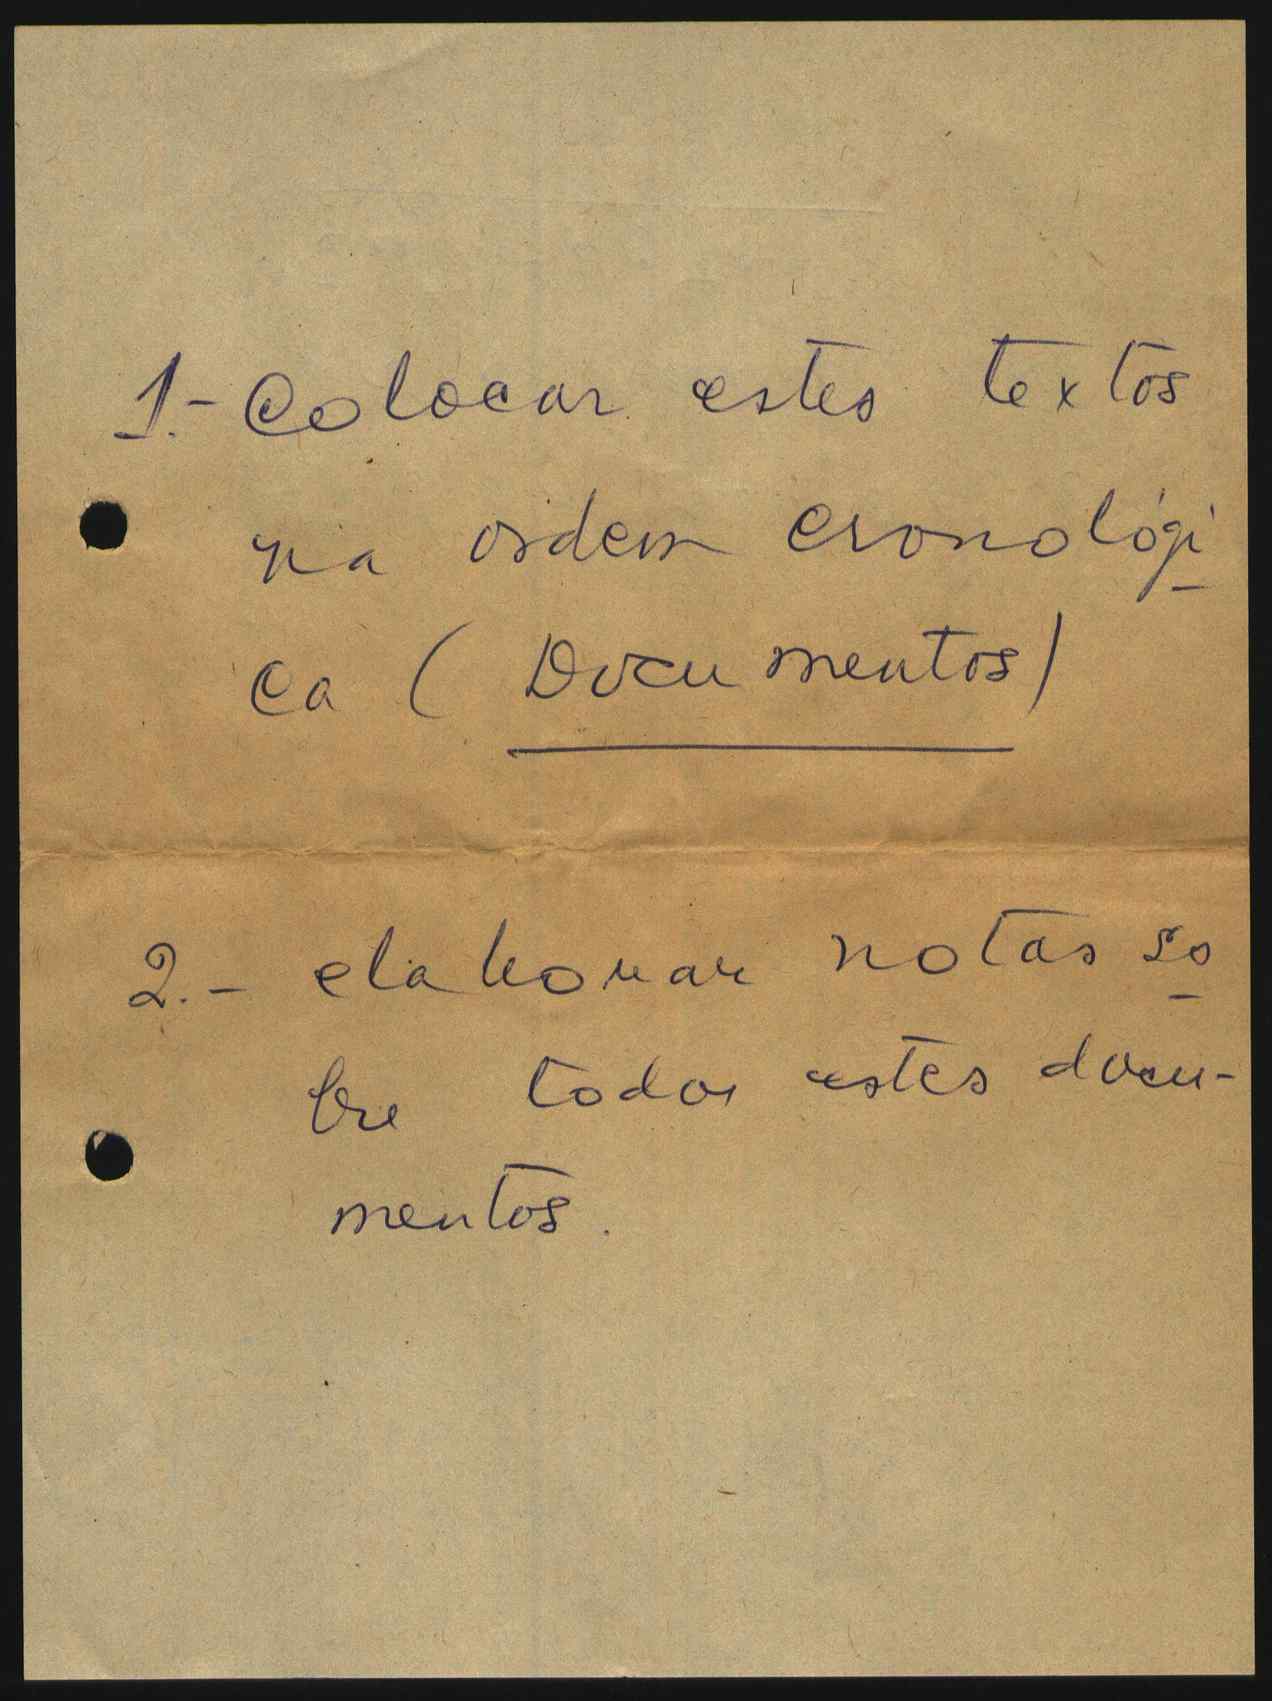 1.- Colocar estes textos
na ordem cronológi-
ca (Documentos)
2.- elaborar notas so-
bre todos estes docu-
mentos.